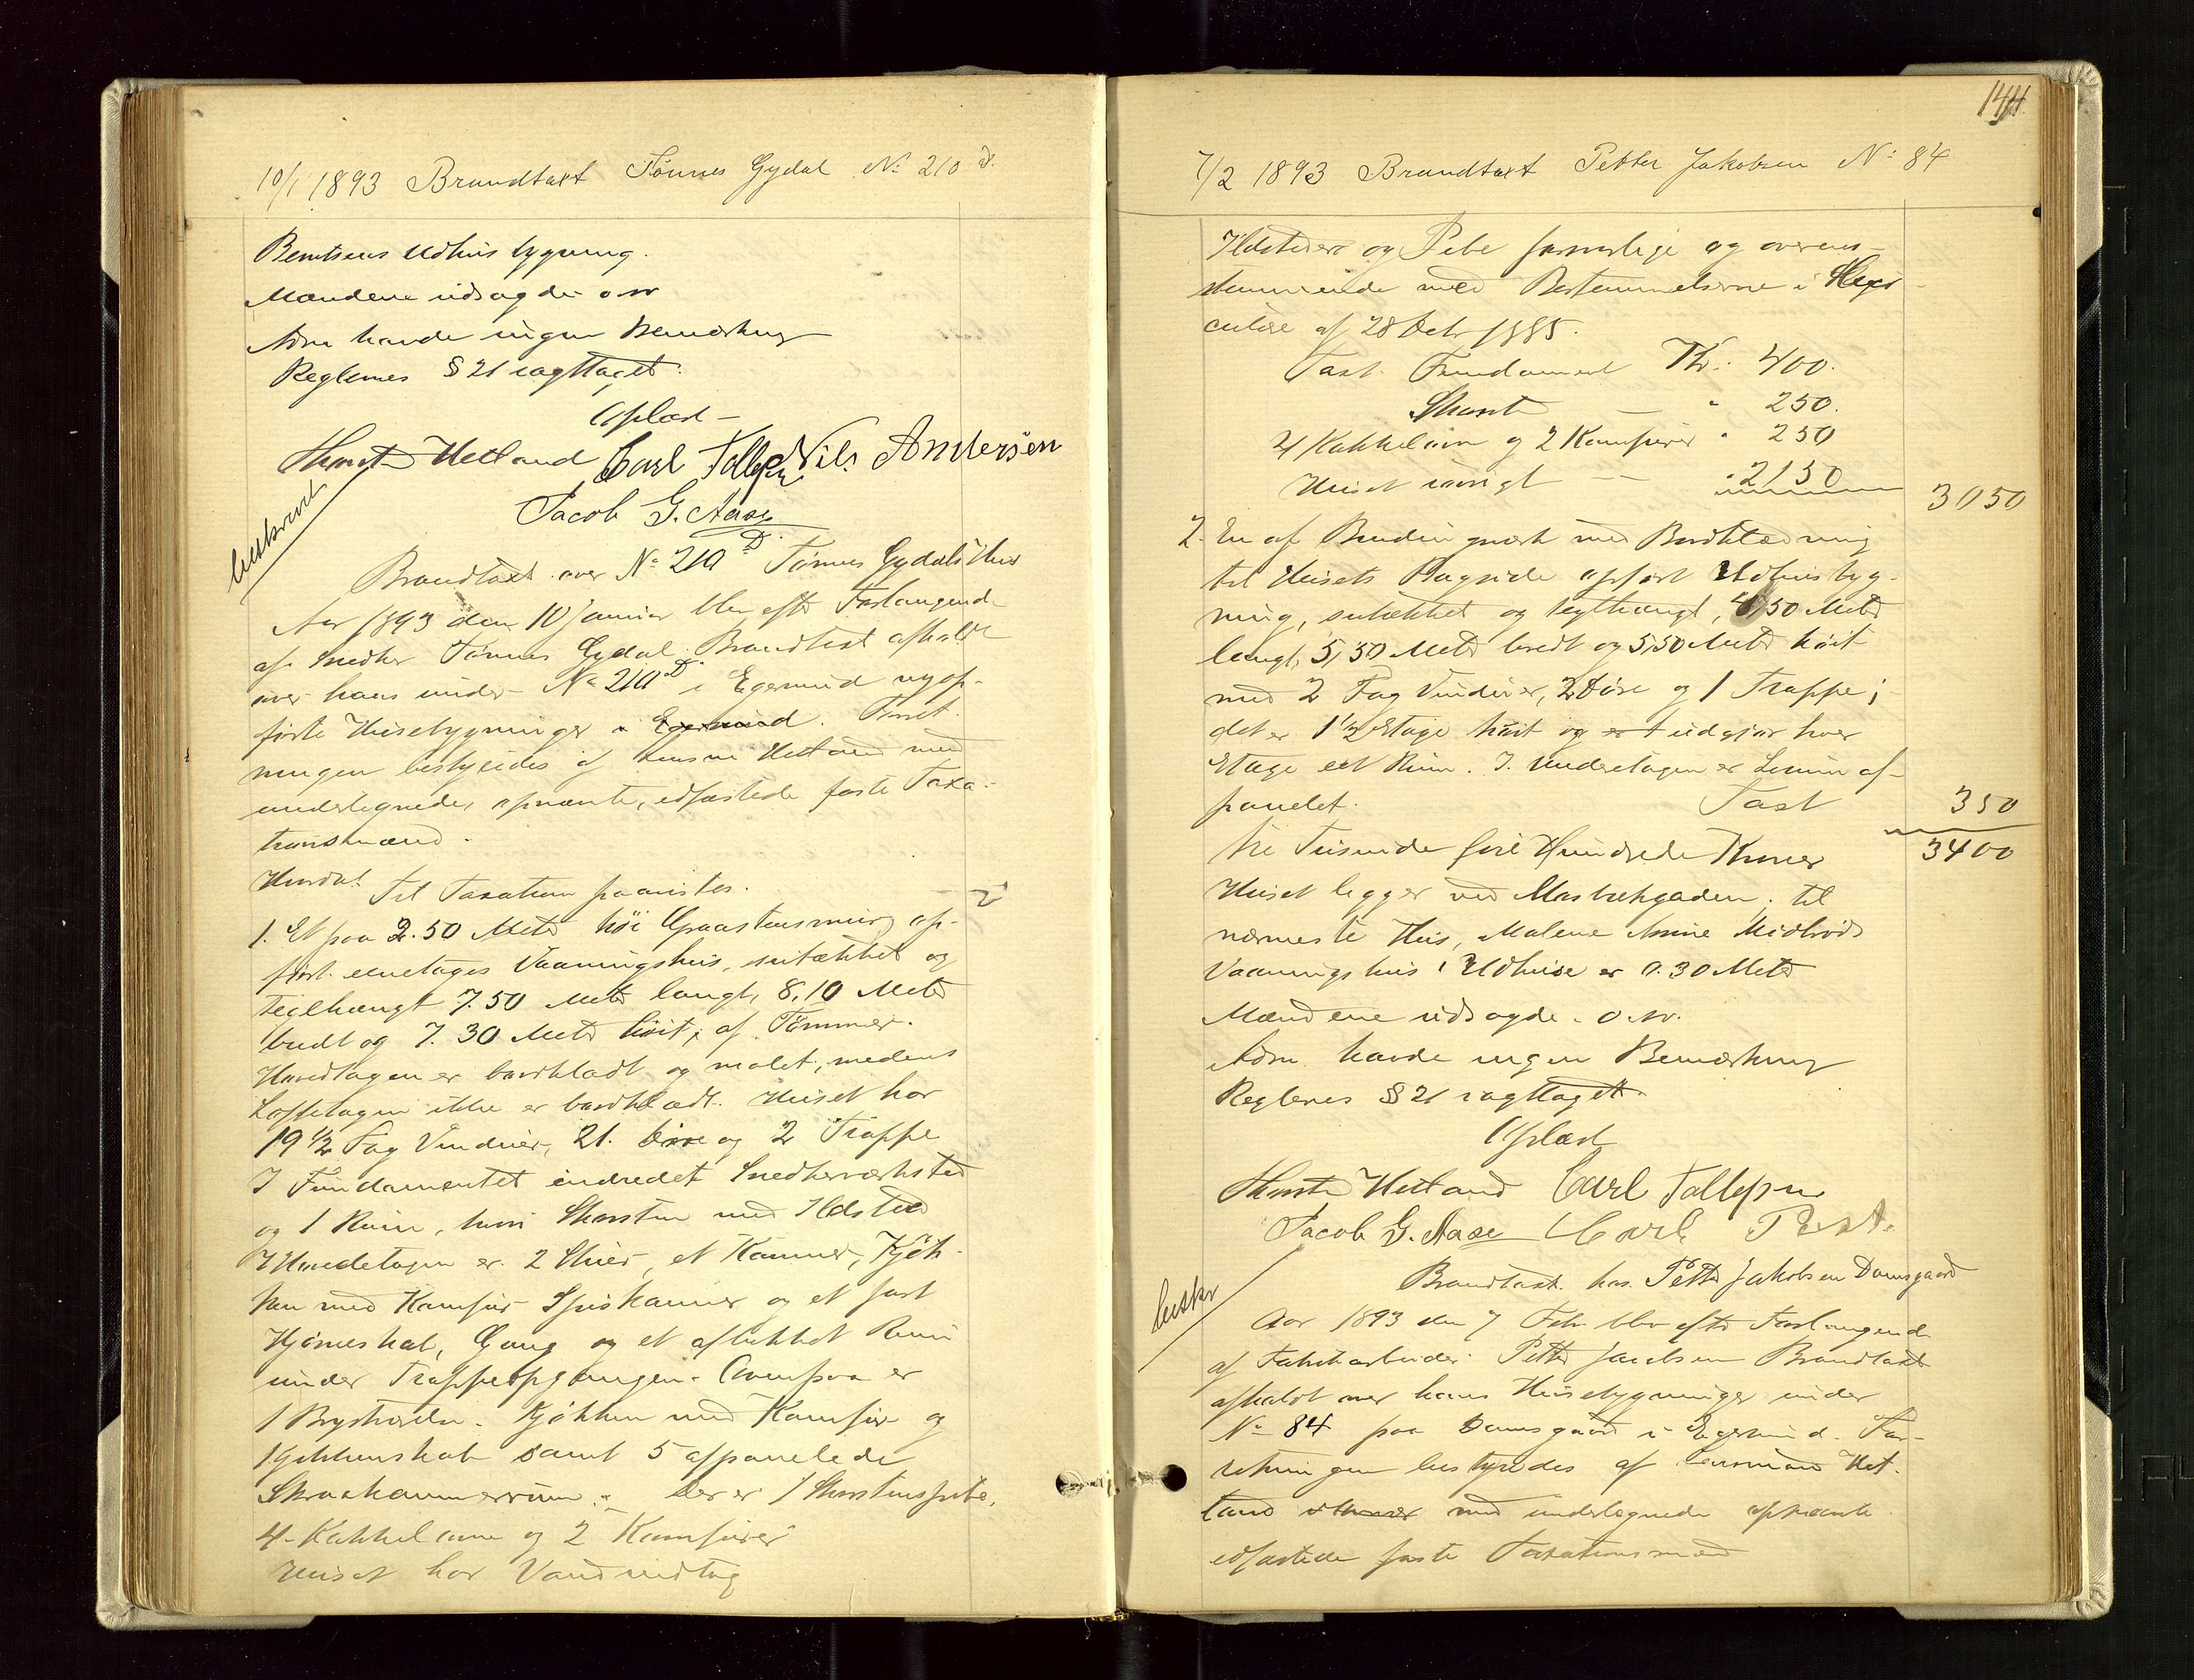 10/1 1893 Brandtaxt Tønnes Gydal No 210 d.
Berntsens Udhusbygning.
Mændene udsagde o.s.v
Adm havde ingen Bemærkning
Reglernes § 21 iagttaget.
Oplæst
Thorst. Hetland Carl Tollefsen Nils Andersen
Jacob G. Aase
beskrevet
Brandtaxt over No 210 D Tønnes Gydals Hus
Aar 1893 den 10 Januar blev efter Forlangende
af Snedker Tønnes Gydal Brandtaxt afholdt
over hans under No 210 D i Egersund nyop-
førte Husebygninger i Egersund. Forret-
ningen bestyredes af Lensm Hetland med
undertegnede, opnævnte, edfæstede faste Taxa-
tionsmænd.
Til Taxation paavistes.
1. Et paa 2.50 Meter høi Graastensmur op-
ført enetages Vaaningshus, sutækket og
teglhængt 7.50 Meter langt, 8,10 Meter
bredt og 7.30 Meter høit, af Tømmer.
Hovedtagen er bordklædt og malet, medens
Loftetagen ikke er bordklædt. Huset har
19 1/2 Fag Vinduer, 21 Døre og 2 Trapper
I Fundamentet indredet Snedkerværksted
og 1 Rum, hvori Skorsten med Ildsted
I Hovedetagen er 2 Stuer, et Kammer, Kjøk-
ken med Komfur Spiskammer og et fast
Hjørneskab, Gang og et aflukket Rum
under Trappeopgangen. Ovenpaa er
1 Kjøkken med Komfur og
1 Kjøkkenskab samt 5 afpanelede
Skraakammerrum. Der er 1 Skorstenspibe,
4 Kakkelovne og 2 Komfurer
Huset har Vandindtag
144
7/2 1893 Brandtaxt Petter Jakobsen No 84
Ildsteder og Pibe forsvarlige og overens-
stemmende med Bestemmelserne i
culære af 28 Oct 1885.
Taxt. Fundament Kr: 400.
Skorst — " 250.
4 Kakkelovne og 2 Komfurer " 250
Huset iøvrigt — " 2150
3050
2. En af Bindingsværk med Bordklædning
til Husets Bagside opført Udhusbyg-
ning, sutækket og teglhængt, 4,50 Meter
langt, 5,50 Meter bredt og 5,50 Meter høit
med 2 Fag Vinduer, 2 Døre og 1 Trappe;
det er 1 1/2 Etage høit og udgjør hver
Etage eet Rum. I Underetagen er
panelet. Taxt 350
3400
tre Tusinde fire Hundrede Kroner
Huset ligger ved ; til
nærmeste Hus, Malene Vaaningshus & Udhuse er 0.30 Meter
Mændene udsagde o.s.v.
Adm. havde ingen Bemærkning
Reglernes § 21 iagttaget.
Oplæst
Thorst. Hetland Carl Tollefsen
Jacob G. Aase Carl
beskr
Brandtaxt hos Petter Jakobsen Damsgaard
Aar 1893 den 7 Febr blev efter Forlangende
af Fabrikarbeider Petter Jacobsen Brandtaxt
afholdt over hans Husebygninger under
No 84 paa Damsgaard i Egersund. For-
retningen bestyredes af Lensmand Het-
land med undertegnede opnævnte
edfæstede faste Taxationsmænd